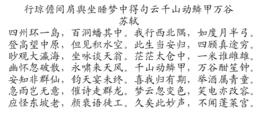 行琼儋间肩舆坐睡梦中得句云千山动鳞甲万谷
苏轼
四州环一岛，百洞蟠其中。我行西北隅，如度月半弓。
登高望中原，但见积水空。此生当安归，四顾真途穷。
眇观大瀛海，坐咏谈天翁。茫茫太仓中，一米谁雌雄。
幽怀忽破散，永啸来天风。千山动鳞甲，万谷酣笙钟。
安知非群仙，钧天宴未终。喜我归有期，举酒属青童。
急雨岂无意，催诗走群龙。梦云忽变色，笑电亦改容。
应怪东坡老，颜衰语徒工。久矣此妙声，不闻蓬莱宫。